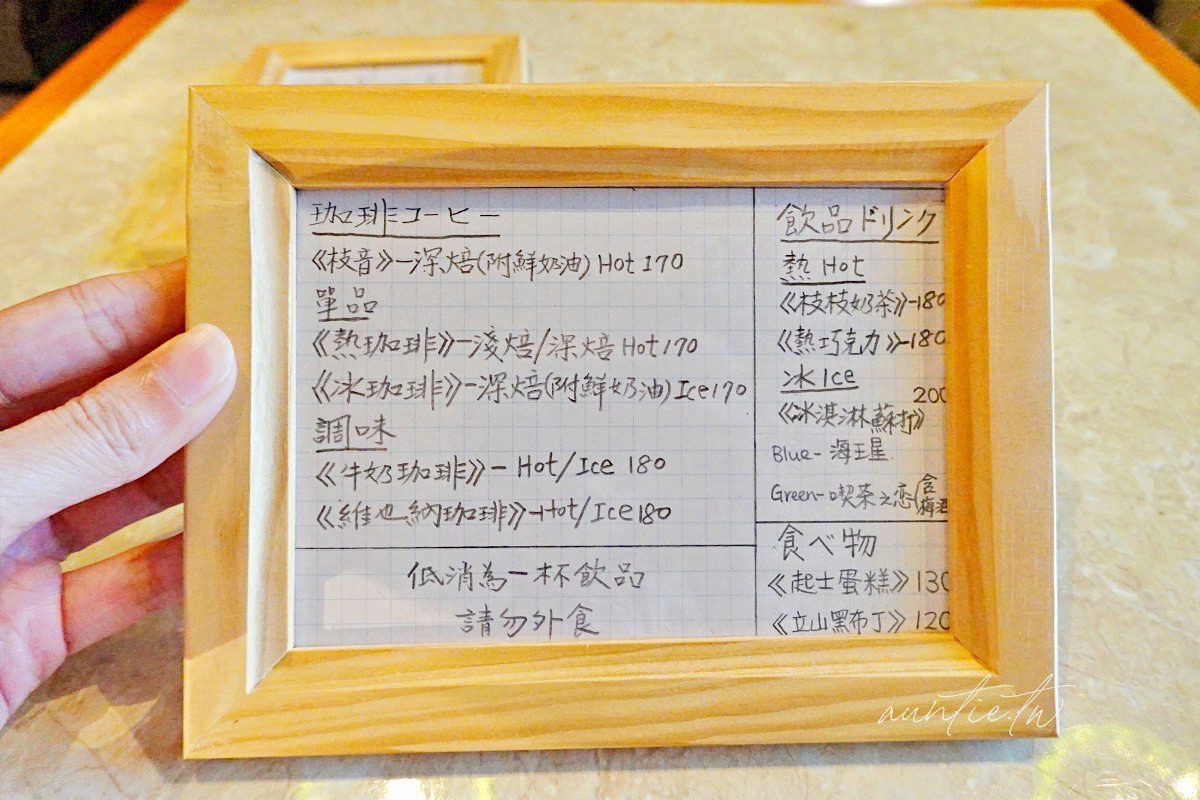 珈琲コーヒー
《枝音》-深焙(附鮮奶油) Hot 170
單品
《熱珈琲》-淺焙/深焙 Hot 170
《冰珈琲》-深焙(附鮮奶油) Ice 170
調味
《牛奶珈琲》- Hot/Ice 180
《維也納珈琲》-Hot/Ice 180
低消為一杯飲品
請勿外食
飲品ドリンク
熱 Hot
《枝枝奶茶》-180
《熱巧克力》-180
冰 Ice
200
《冰淇淋蘇打》
Blue- 海王星
Green- 喫茶之恋(含梅酒
食べ物
《起士蛋糕》130
《立山黑布丁》120
auntie.tw